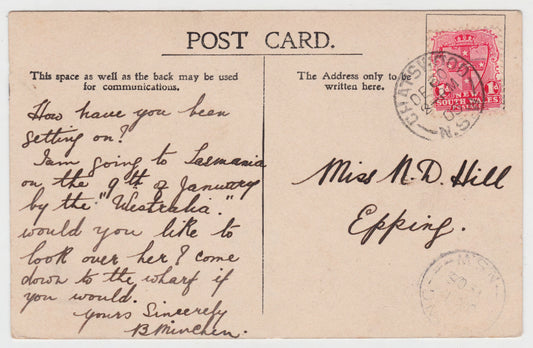 POST CARD.
This space as well as the back may be used
for communications.
The Address only to be
written here.
How have you been
getting on?
I am going to Tasmania
on the 9th of January
by the "Westralia."
would you like to
look over her? come
down to the wharf if
you would.
Yours Sincerely
B Minchen.
Miss N. D. Hill
Epping.
CHATSWOOD
N.S.
1d
NEW
SOUTH WALES
N.S.W